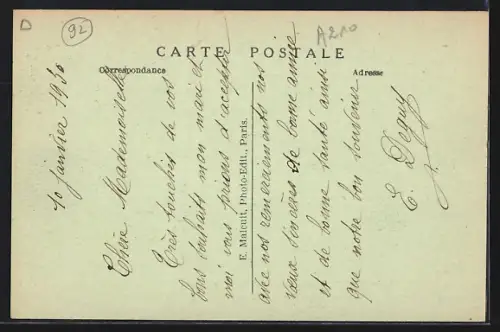 D
92
A210
CARTE POSTALE
Correspondance
Adresse
E. Malcuit, Photo-Edit., Paris.
10 janvier 1930
Chère Mademoiselle
Très touchés de vos
bons souhaits mon mari et
moi vous prions d'accepter
avec nos remerciements nos
vœux sincères de bonne année
et de bonne santé ainsi
que notre bon souvenir
E. Deguy